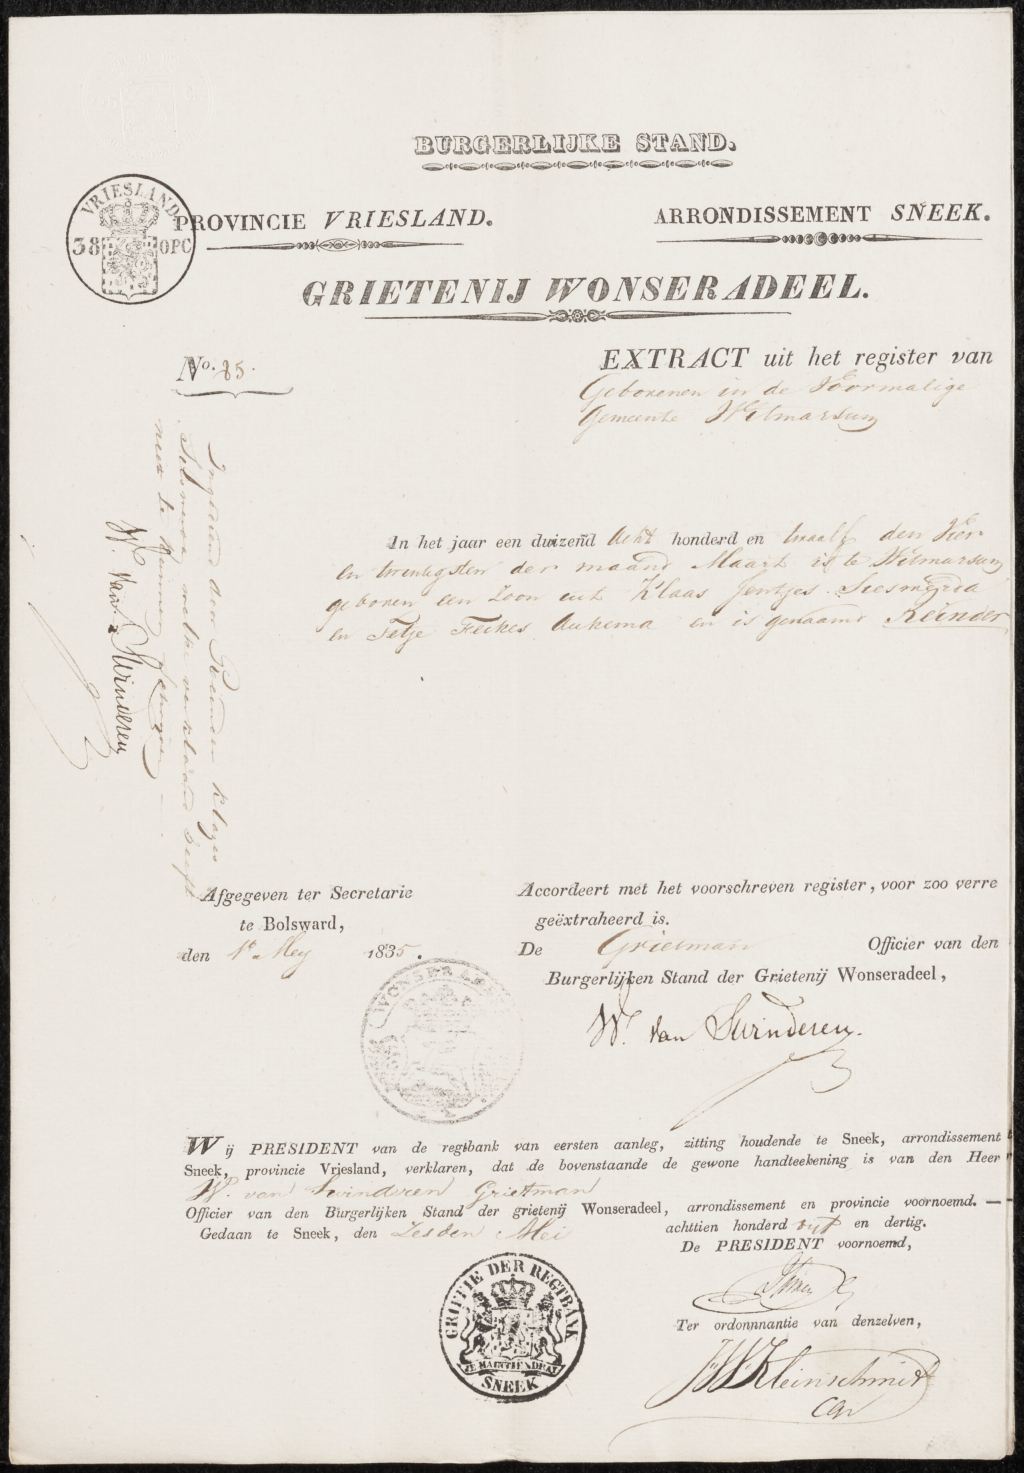 BURGERLIJKE STAND.
VRIESLAND
38 OPC
PROVINCIE VRIESLAND.
ARRONDISSEMENT SNEEK.
GRIETENIJ WONSERADEEL.
No. 85.
EXTRACT uit het register van
Geborenen in de Voormalige
Gemeente Witmarsum
In het jaar een duizend Acht honderd en twaalf den Vier
en twentigsten der maand Maart is te Witmarsum
geboren een Zoon uit Klaas Jentjes Siesmerda
en Tetje Feikes Aukema en is genaamd Reinder
den Reinder Klazes
welke verklaard heeft
niet te kunnen
W. van Swinderen
Afgegeven ter Secretarie
te Bolsward,
den 1e Mey 1835.
WONSERADEEL
Accordeert met het voorschreven register, voor zoo verre
geëxtraheerd is.
De Grietman Officier van den
Burgerlijken Stand der Grietenij Wonseradeel,
W. van Swinderen.
Wij PRESIDENT van de regtbank van eersten aanleg, zitting houdende te Sneek, arrondissement
Sneek, provincie Vriesland, verklaren, dat de bovenstaande de gewone handteekening is van den Heer
W. van Swinderen Grietman
Officier van den Burgerlijken Stand der grietenij Wonseradeel, arrondissement en provincie voornoemd. —
Gedaan te Sneek, den Zesden Mei achttien honderd vijf en dertig.
De PRESIDENT voornoemd,
Ter ordonnnantie van denzelven,
JW Kleinschmit
GRIFFIE DER REGTBANK
JE MAINTIENDRAI
SNEEK